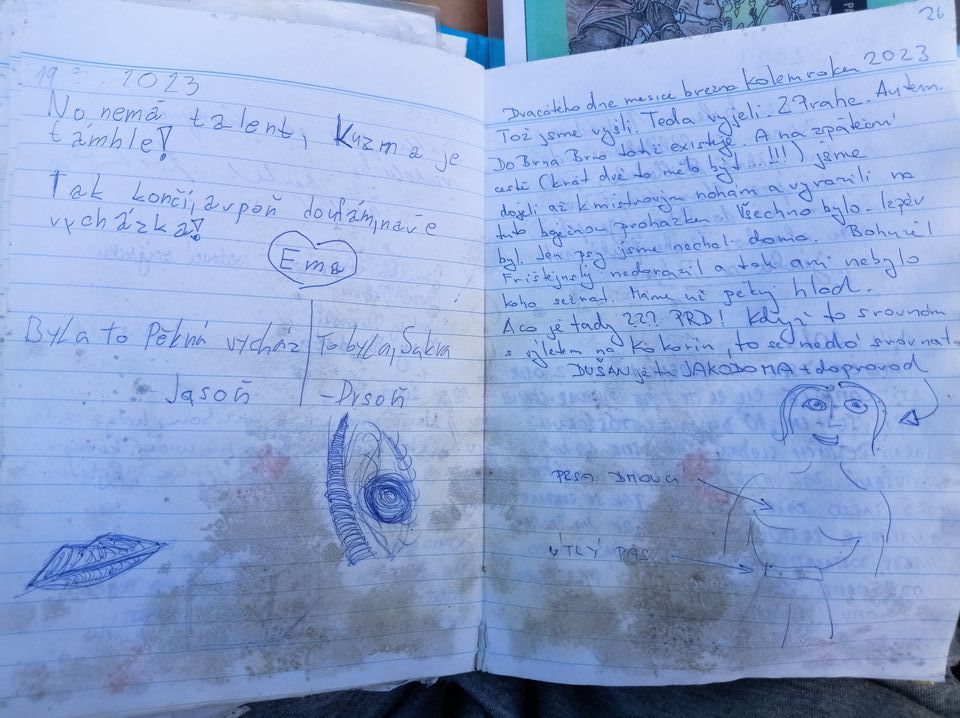 19. 3. 2023
No nemá talent, Kuzma je
támhle!
Tak končí, avpoň doufám, naše
vycházka!
Ema
Byla to Pěkná vycház
- Jasoň
To byla, Sakra
- Drsoň
26
Dvacátého dne měsíce března kolem roku 2023
Tož jsme vyšli. Teda vyjeli. Z Prahe. Autem.
Do Brna. Brno totiž existuje. A na zpáteční
cestě (krát dvě to mělo být...!!!) jsme
dojeli až k mistrovým nohám a vyrazili na
tuto bojínou procházku. Všechno bylo.
byl. Jen psy jsme nechali doma. Bohužel
Frištejnský nedorazil a tak ani nebylo
koho sežrat. Máme už pěkný hlad.
A co je tady ??? PRD! Když to srovnám
s výletem na Kokořín, to se nedá srovnat.
DUŠAN je tu JAKODOMA + doprovod
PRSA DMOUCÍ
ÚTLÝ PAS